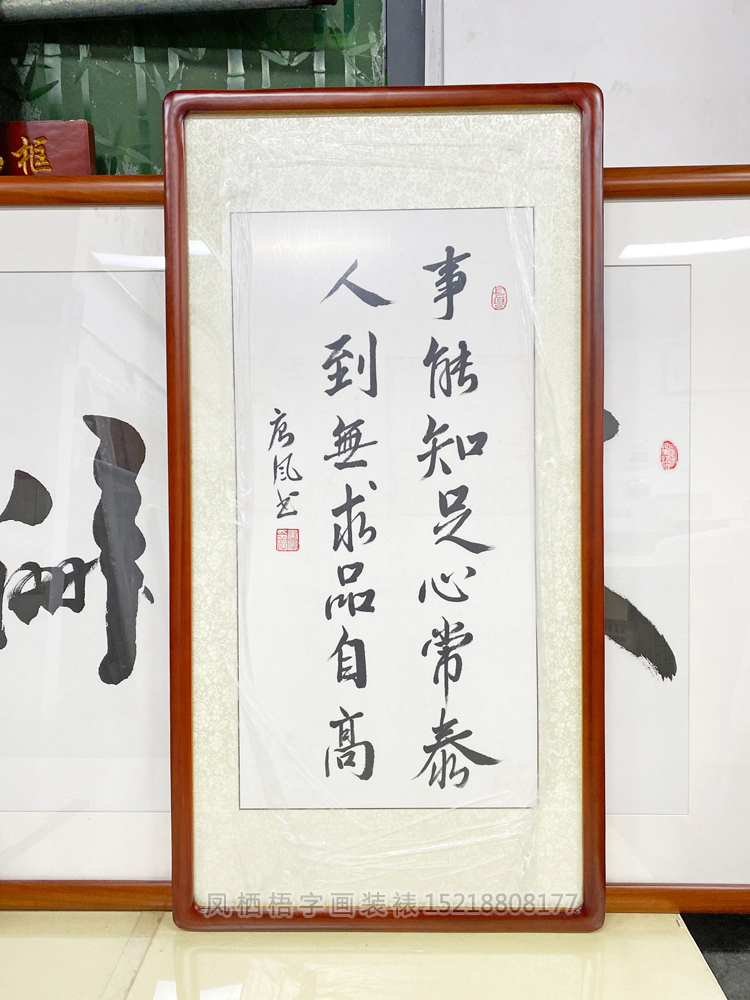 事能知足心常泰
人到無求品自高
唐风书
框
凤栖梧字画装裱15218808177